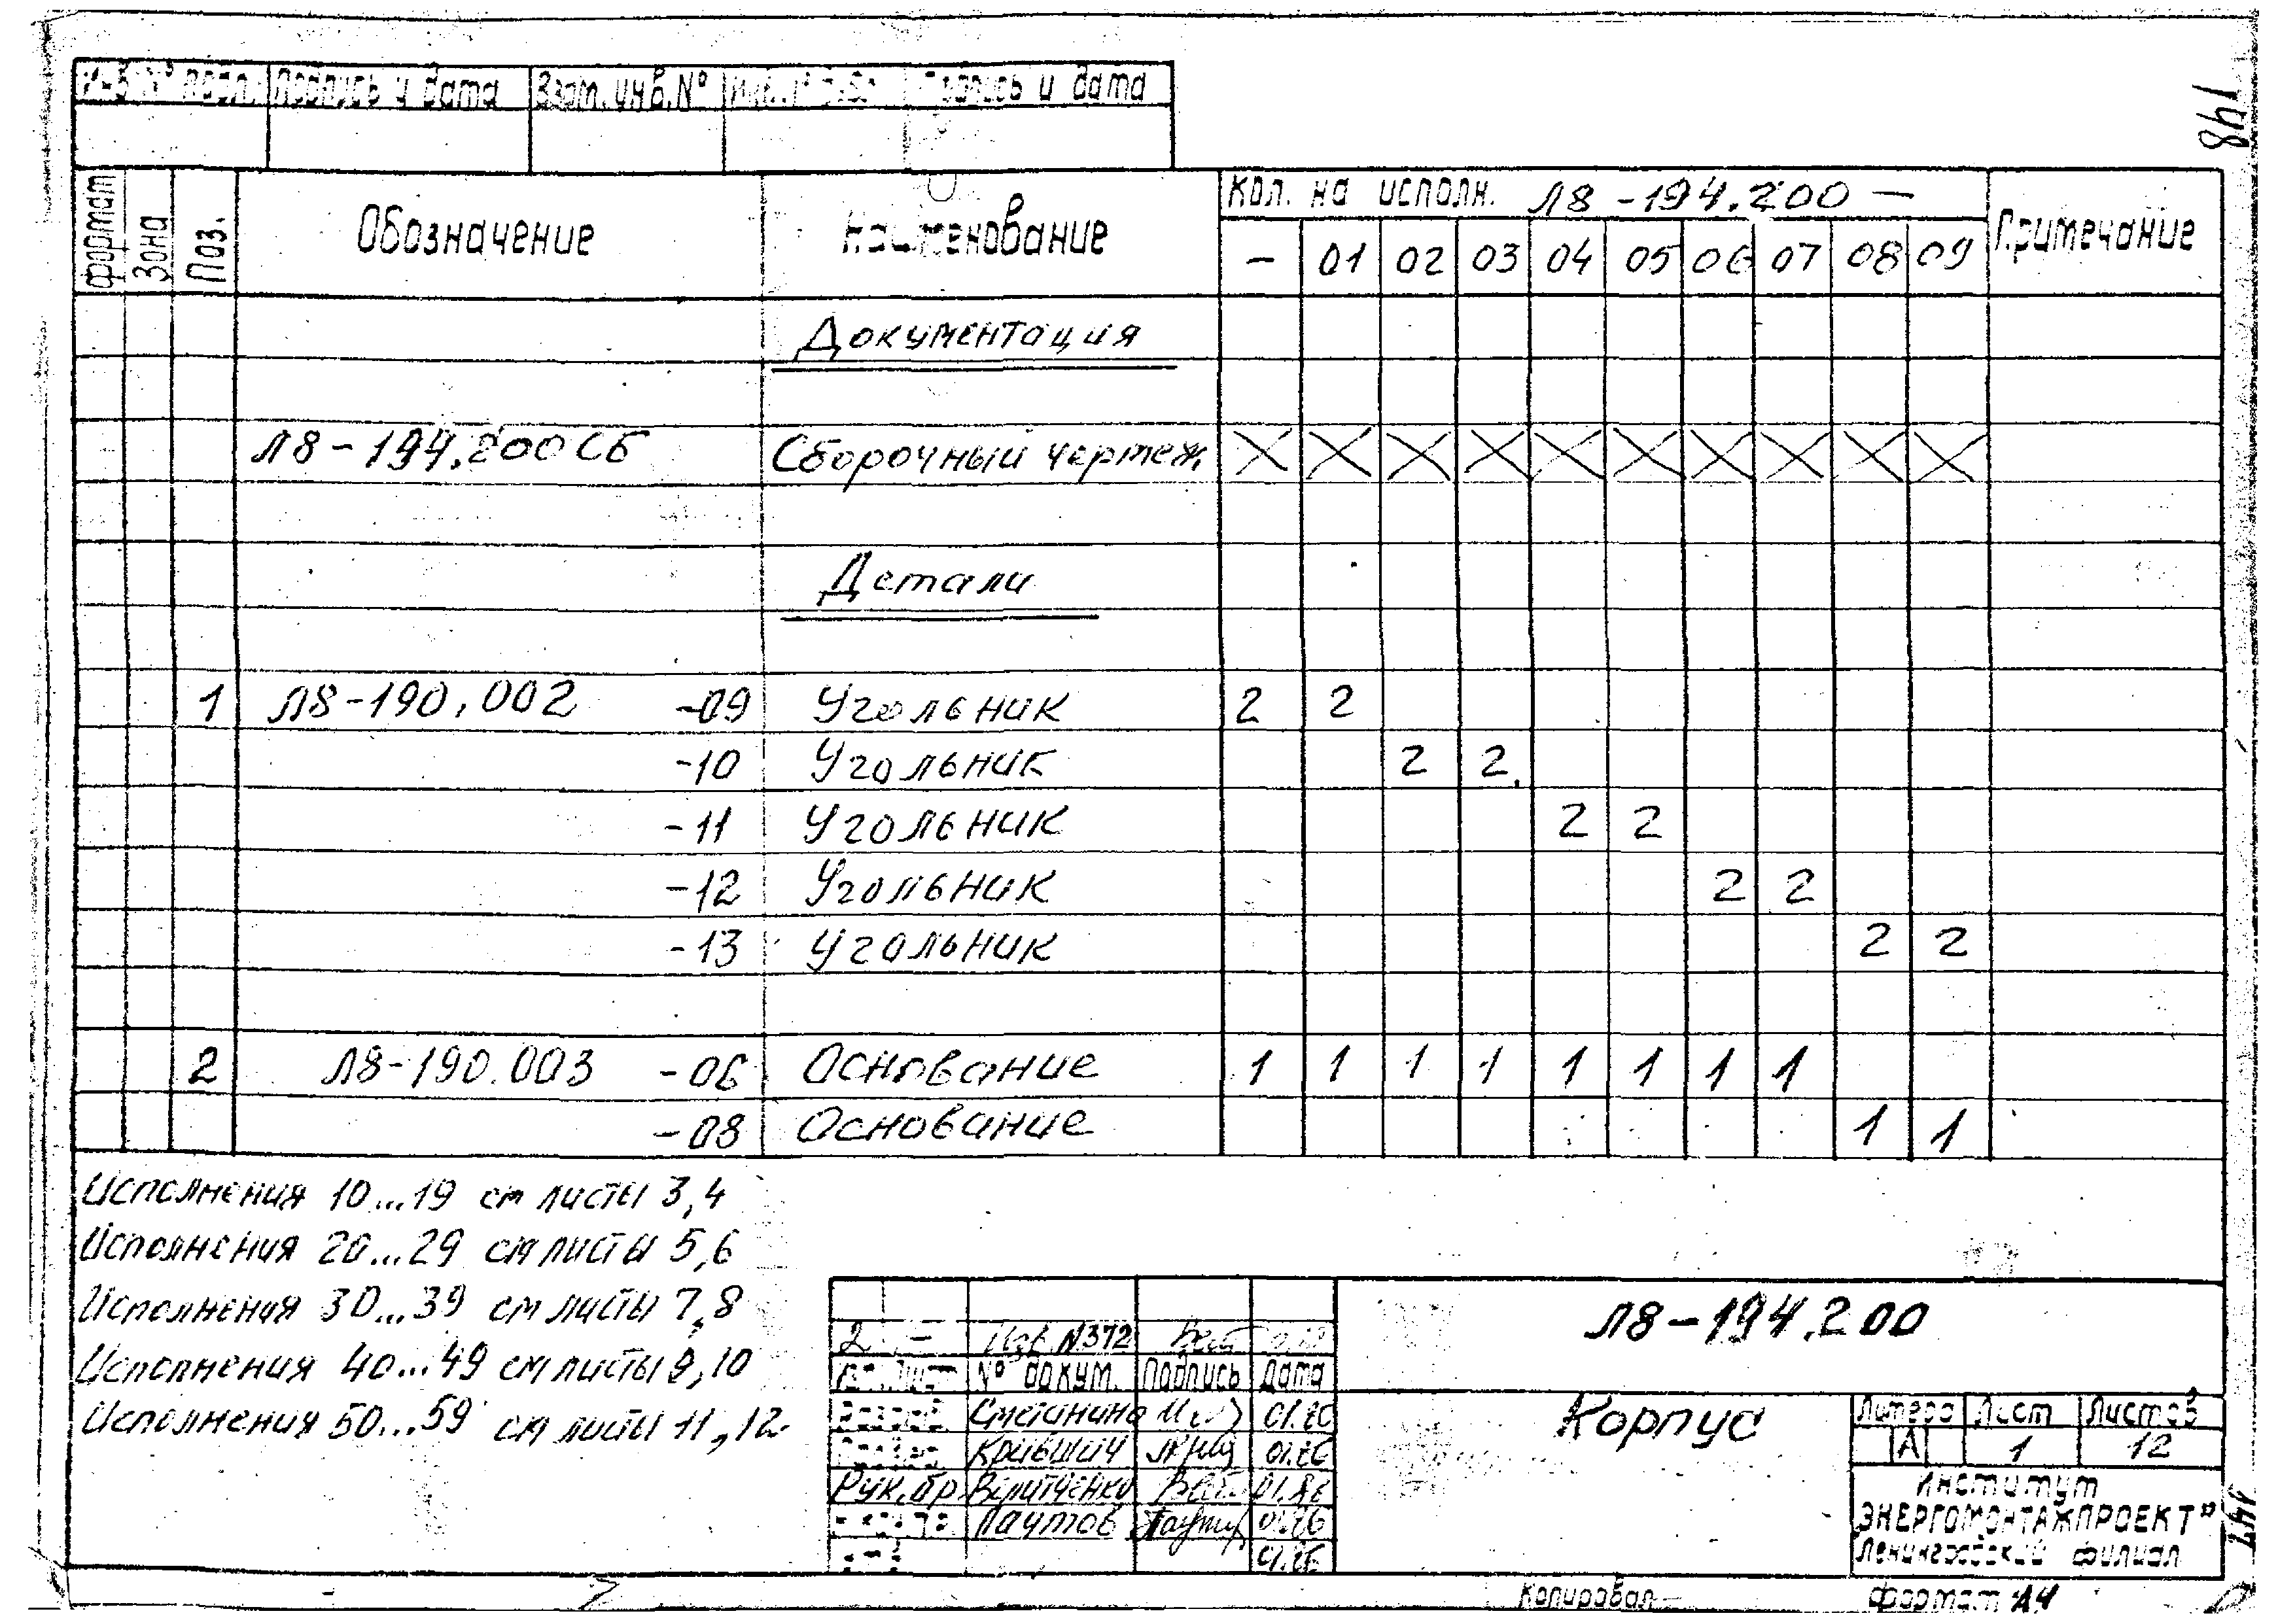 148
Инв.№ подл. Подпись и дата Взам.инв.№ Подпись и дата
Формат Зона Поз. Обозначение Наименование Кол. на исполн. Л8-194.200- Примечание
- 01 02 03 04 05 06 07 08 09
Документация
Л8-194.200СБ Сборочный чертеж. X X X X X X X X X X
Детали
1 Л8-190.002 -09 Угольник 2 2
-10 Угольник 2 2
-11 Угольник 2 2
-12 Угольник 2 2
-13 Угольник 2 2
2 Л8-190.003 -06 Основание 1 1 1 1 1 1 1 1
-08 Основание 1 1
Исполнения 10...19 см листы 3,4
Исполнения 20...29 см листы 5,6
Исполнения 30...39 см листы 7,8
Исполнения 40...49 см листы 9,10
Исполнения 50...59 см листы 11,12
Л8-194.200
2 - Изв.N372
Лист № докум. Подпись Дата
Корпус
Литера Лист Листов
А 1 12
Сметанина
01.86
Рук.бр. 01.86
Паутов 01.86
01.86
Институт
"ЭНЕРГОМОНТАЖПРОЕКТ"
Ленинградский филиал
147
Копировал
Формат А4